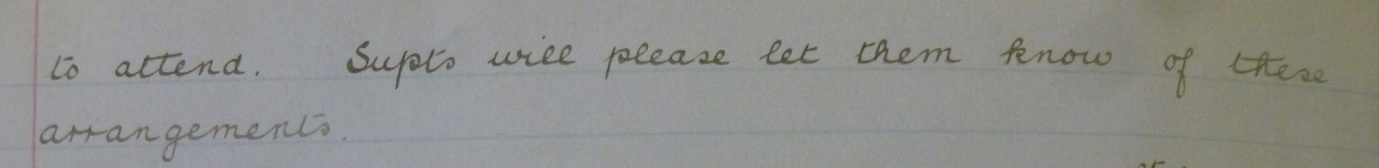 to attend. Supts will please let them know of these
arrangements.